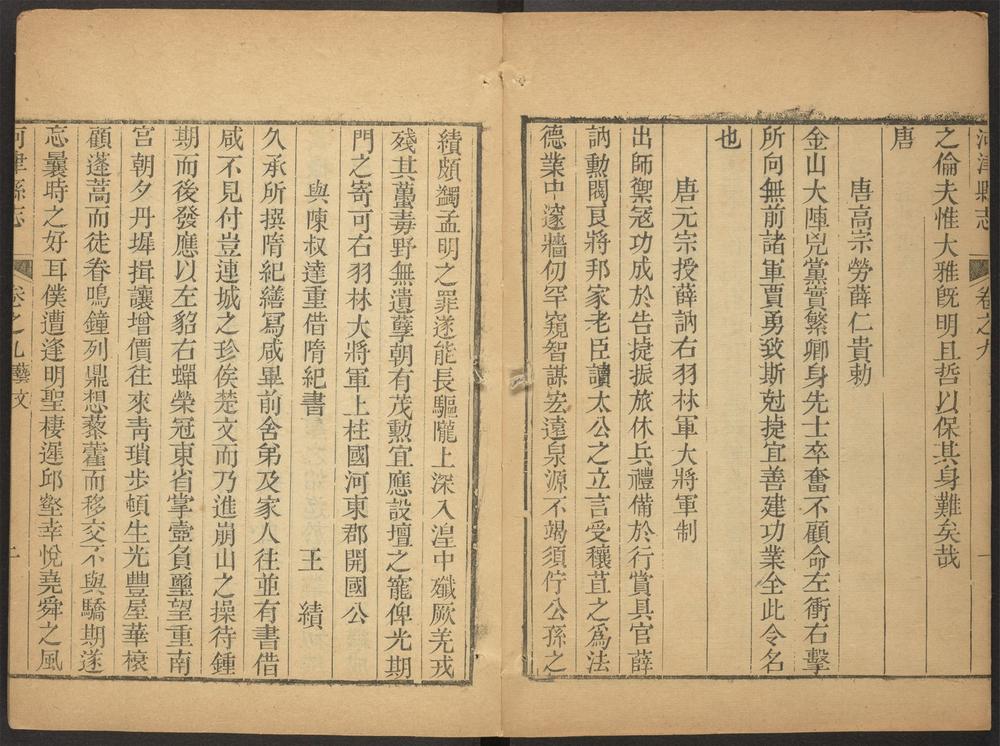 河津縣志 卷之九
之倫夫惟大雅旣明且哲以保其身難矣哉
唐
唐高宗勞薛仁貴勅
金山大陣兇黨實繁卿身先士卒奮不顧命左衝右擊
所向無前諸軍賈勇致斯尅㨗宜善建功業全此令名
也
唐元宗授薛訥右羽林軍大將軍制
出師禦寇功成於告㨗振旅休兵禮備於行賞具官薛
訥勳閥良將邦家老臣讀太公之立言受穰苴之爲法
德業中邃牆仞罕窺智謀宏遠泉源不竭須佇公孫之
績頗蠲孟明之罪遂能長驅隴上深入湟中殲厥羌戎
殘其蠆毒野無遺孽朝有茂勲宜應設壇之寵俾光期
門之寄可右羽林大將軍上柱國河東郡開國公
與陳叔達重借隋紀書 王績
久承所撰隋紀繕寫咸畢前舍弟及家人往並有書借
咸不見付豈連城之珍俟楚文而乃進崩山之操待鍾
期而後發應以左貂右蟬榮冠東省掌壼負璽望重南
宮朝夕丹墀揖讓增價往來靑瑣步頓生光豐屋華榱
顧蓬蒿而徒眷鳴鐘列鼎想藜藿而移交不與驕期遂
忘曩時之好耳僕遭逢明聖棲遲邱壑幸悅堯舜之風
河津縣志 卷之九藝文 一